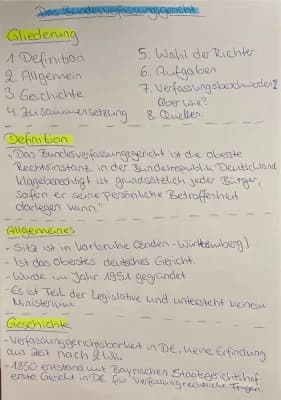 Das Bundesverfassungsgericht
Gliederung
1 Definition
2 Allgemein
3 Geschichte
4 Zusammensetzung
5. Wahl der Richter
6. Aufgaben
7. Verfassungsbeschwerden?
Aber wie?
8. Quellen
Definition
"Das Bundesverfassungsgericht ist die oberste
Rechtsinstanz in der Bundesrepublik Deutschland
klageberechtigt ist grundsätzlich jeder Bürger,
sofern er seine persönliche Betroffenheit
darlegen kann."
Allgemeines
- Sitz ist in Karlsruhe (Baden-Württemberg)
- Ist das Oberstes deutsches Gericht.
- Wurde im Jahr 1951 gegründet
- Es ist Teil der Legislative und untersteht keinem
Ministerium
Geschichte
- Verfassungsgerichtsbarkeit in DE, keine Erfindung
aus Zeit nach 2 WK.
- 1850 entstand mit Bayrischen Staatsgerichtshof
erste Gericht in DE für verfassungsrechtliche Fragen